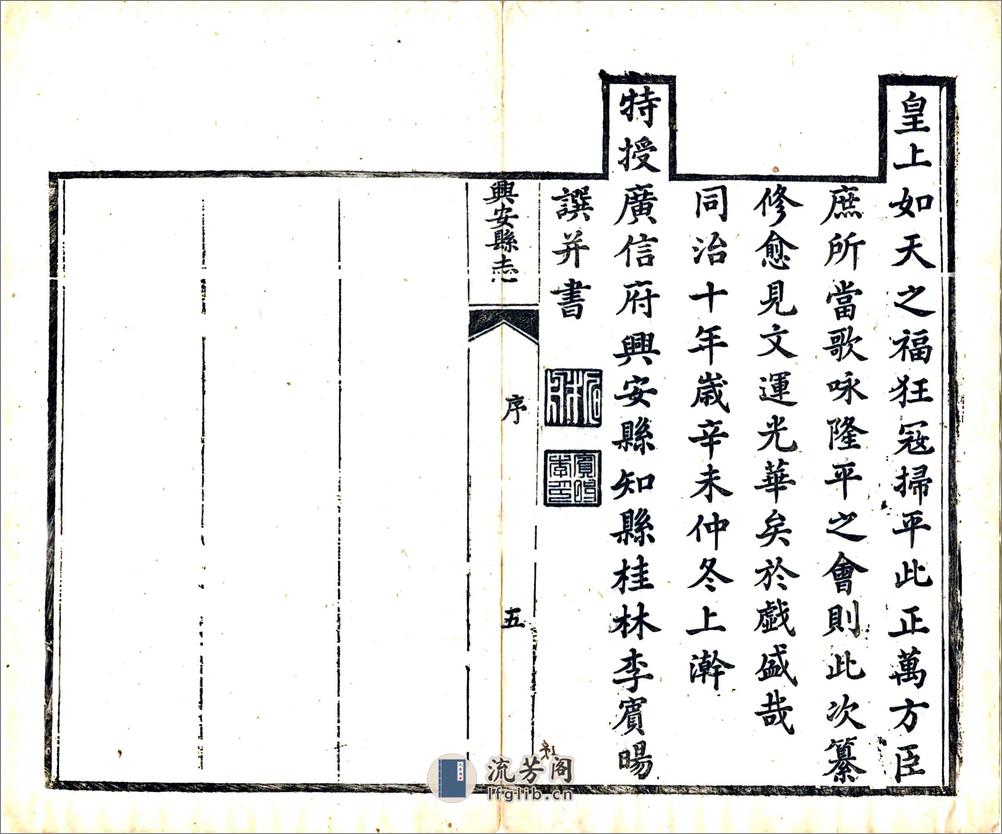 皇上如天之福狂寇掃平此正萬方臣
庶所當歌咏隆平之會則此次纂
修愈見文運光華矣於戲盛哉
同治十年歲辛未仲冬上澣
特授廣信府興安縣知縣桂林李賓暘
譔并書
賓暘
興安縣志
序
五
流芳阁
lfglib.cn